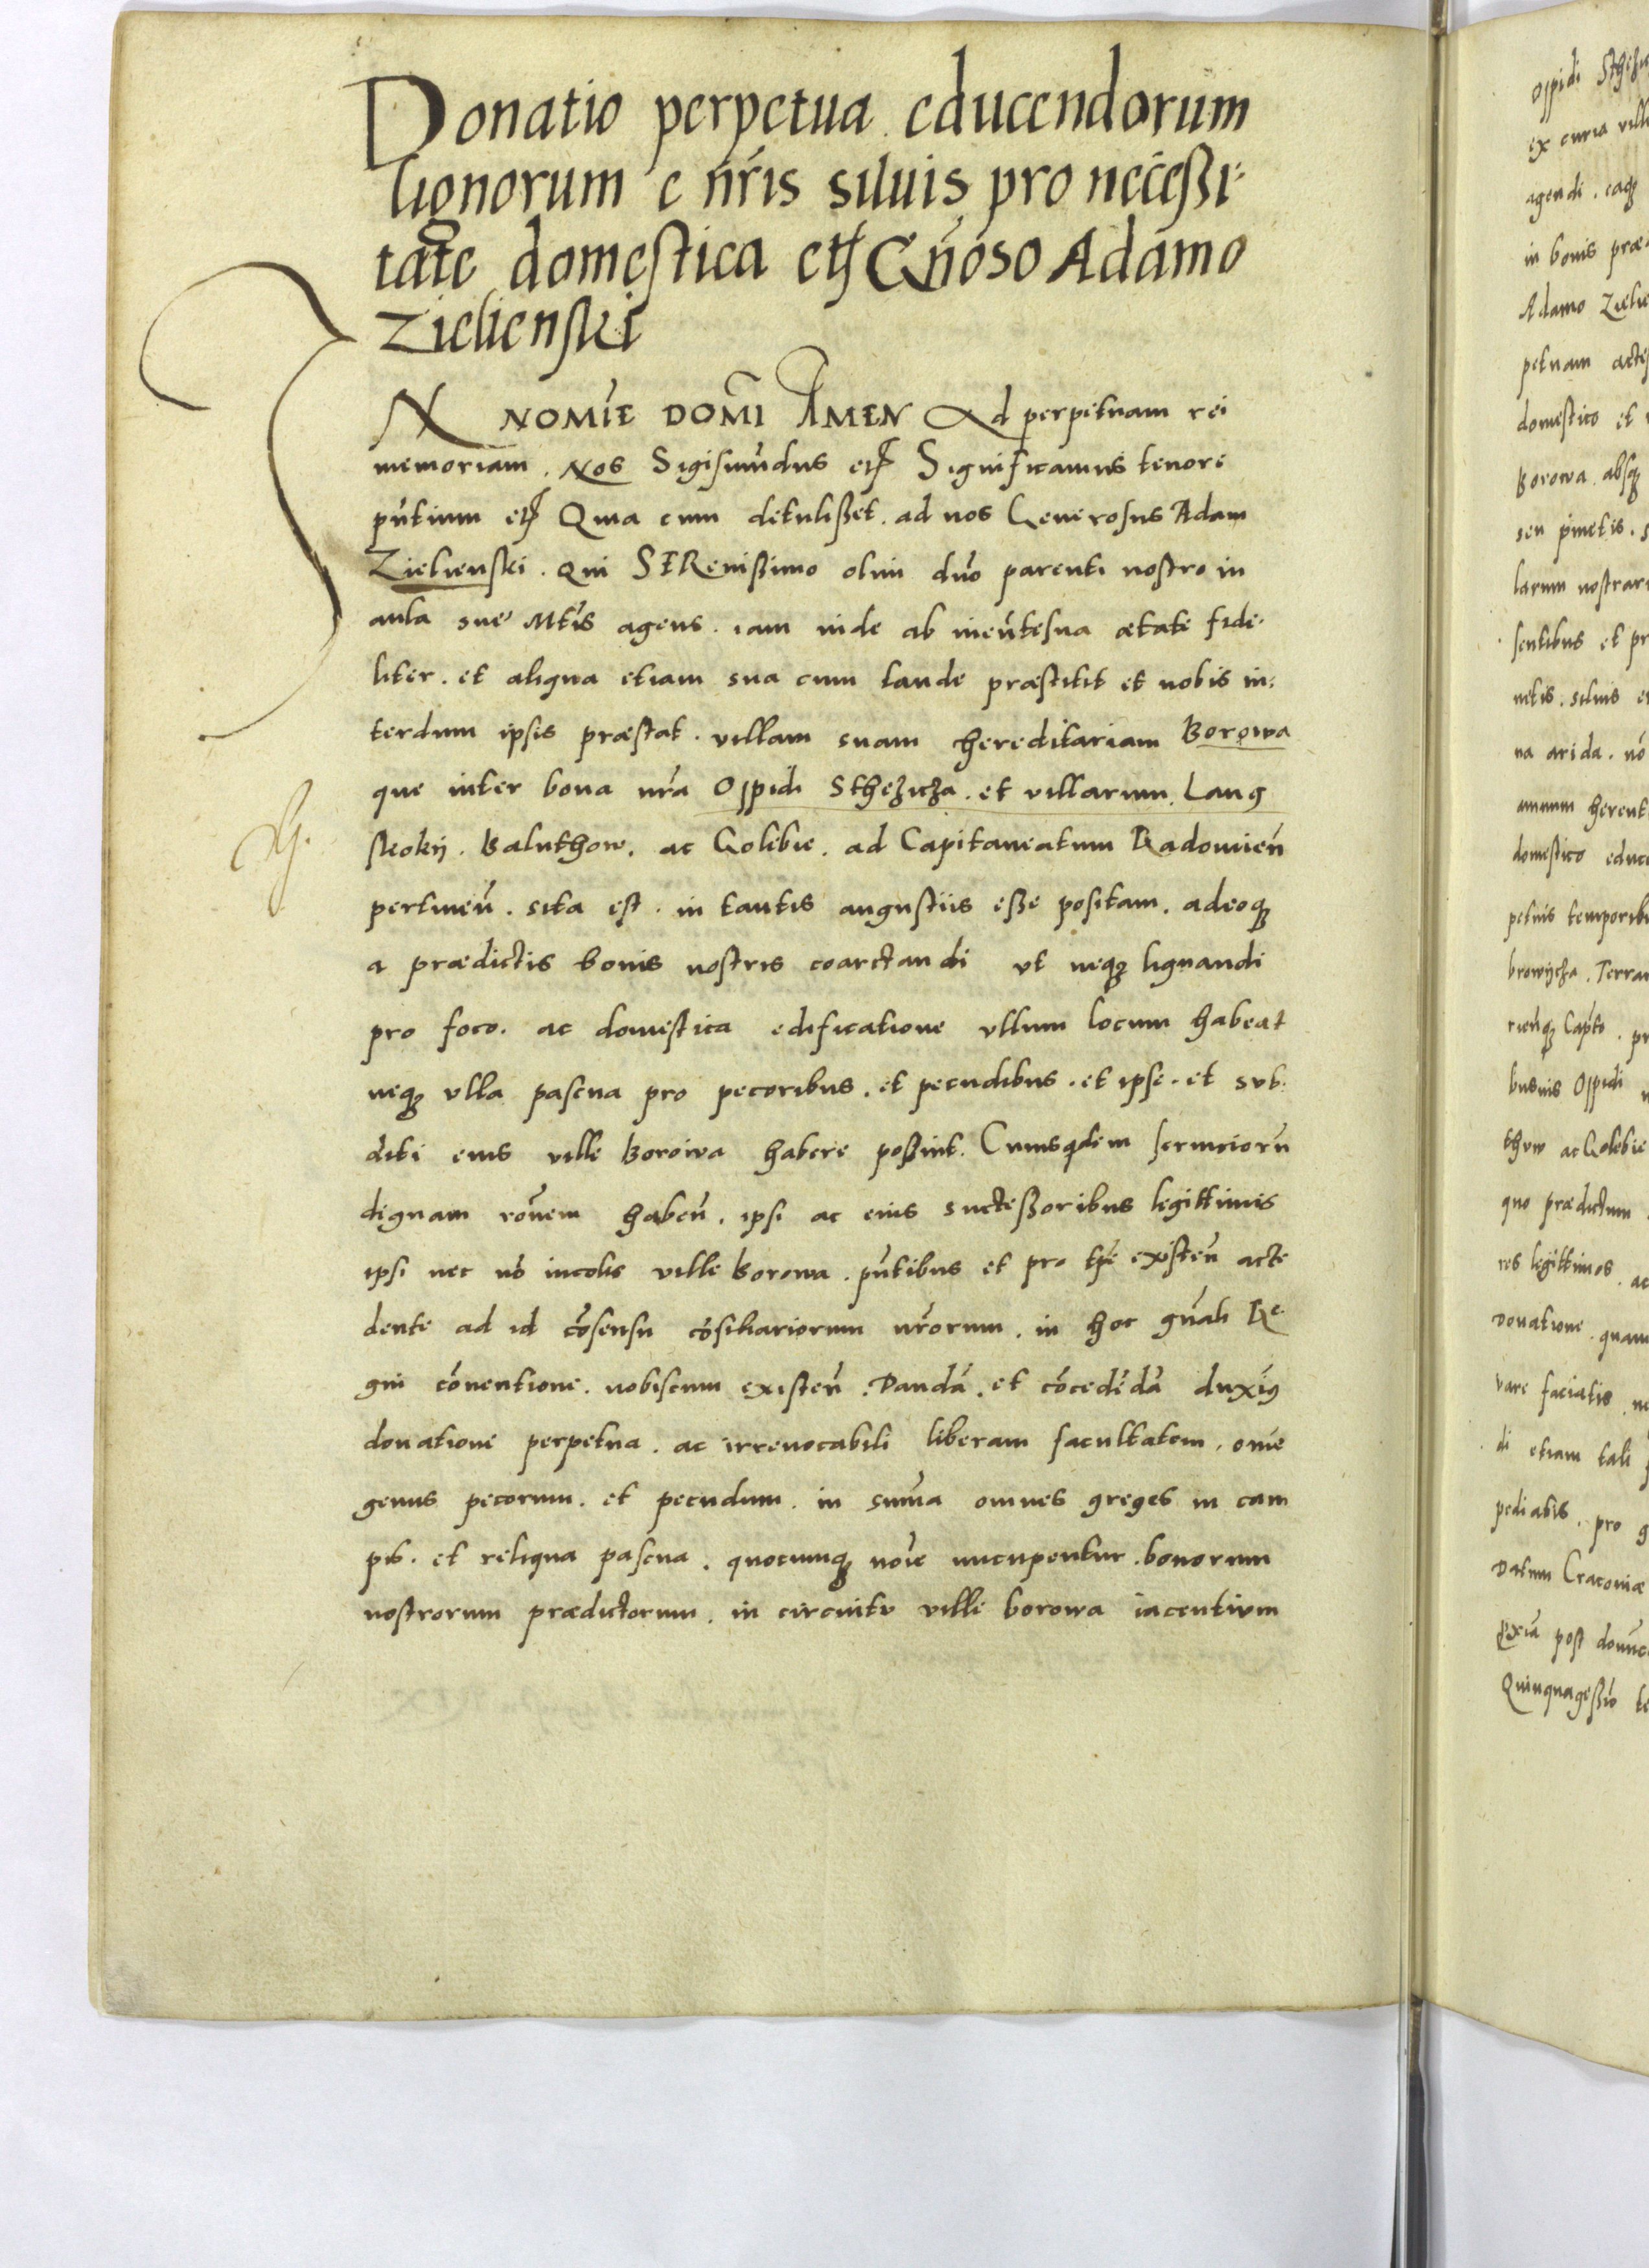 Donatio perpetua educendorum
lignorum e nr̃is siluis pro neceßi-
tate domestica etc̃ Gñoso Adamo
Zielienski
IN NOMĪE DOMĪ AMEN Ad perpetuam rei
memoriam. Nos Sigismũdus etc̃ Significamus tenore
pñtium etc̃ Quia cum detulißet. ad nos Generosus Adam
Zielienski. qui SERenißimo olim dño parenti nostro in
aula sue Mtĩs agens. iam inde ab ineũte sua ætate fide-
liter. et aliqua etiam sua cum laude præstitit et nobis in-
terdum ipsis præstat. villam suam hereditariam Borowa
que inter bona nr̃a Oppidi Sthezicza. et villarum. Lang
skokij. Baluthow. ac Golebie. ad Capitaneatum Radomieñ
pertineñ. sita est. in tantis angustiis eße positam. adeoq
a prædictis bonis nostris coarctandi vt neq lignandi
pro foco. ac domestica edificatione vllum locum habeat
neq vlla pascua pro pecoribus. et pecudibus. et ipse. et sub-
diti eius ville Borowa habere poßint. Cuiusqdem seruiciorũ
dignam rõnem habeñ. ipsi ac eius succeßoribus legittimis
ipsi nec nõ incolis ville Borowa. pñtibus et pro tpẽ existeñ acce
dente ad id cõsensu cõsiliariorum nr̃orum. in hoc gñali Re-
gni cõuentione. nobiscum existeñ. Dandã. et cõcedẽdã duxĩg
donatione perpetua. ac irreuocabili liberam facultatem. om̃e
genus pecorum. et pecudum. in sum̃a omnes greges in cam
pis. et reliqua pascua. quocumq noĩe nucupentur. bonorum
nostrorum prædictorum. in circuitu ville borowa iacentium
Oppidi
ex curia
agendi. eaq
in bonis
Adamo
petuam
domestico et
Borowa. absq
seu pinetis.
larum
sentibus et
netis. siluis
na arida. nõ
annum
domestico
petuis
browicza.
Capto.
busuis Oppidi
thow ac Golebie
quo prædictum
res legittimos. ac
Donatione. quam
uare faciatis.
di etiam tali
pediatis. pro
Datum Cracouiæ
post
Quinquageßio